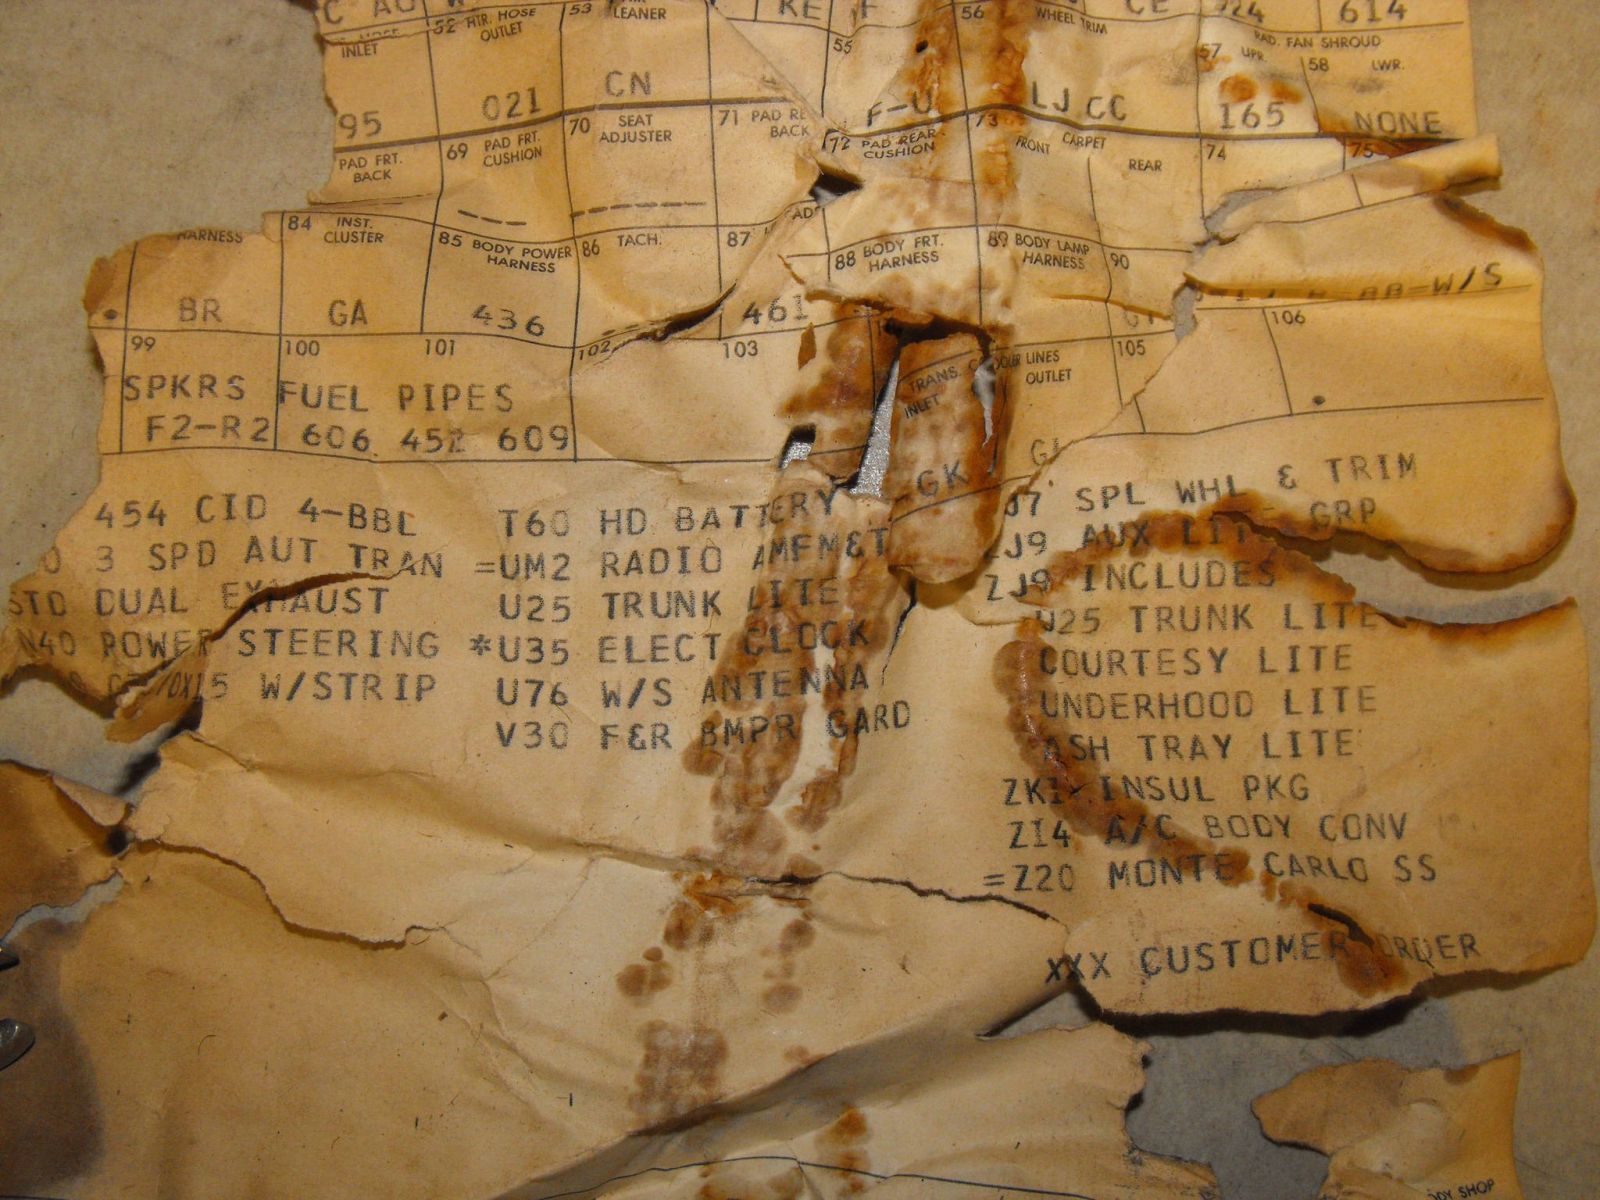 KE F CE 614
INLET 52 HTR. HOSE OUTLET 53 LEANER 55 56 WHEEL TRIM 57 UPR. RAD. FAN SHROUD 58 LWR.
95 021 CN F-U LJ CC 165 NONE
PAD FRT. BACK 69 PAD FRT. CUSHION 70 SEAT ADJUSTER 71 PAD RE BACK 72 PAD REAR CUSHION 73 FRONT CARPET REAR 74 75
HARNESS 84 INST. CLUSTER 85 BODY POWER HARNESS 86 TACH. 87 88 BODY FRT. HARNESS 89 BODY LAMP HARNESS 90
BR GA 436 461
99 100 101 102 103 TRANS. COOLER LINES INLET OUTLET 105 106
SPKRS FUEL PIPES
F2-R2 606 452 609 GK
454 CID 4-BBL T60 HD BATTERY J7 SPL WHL & TRIM
3 SPD AUT TRAN =UM2 RADIO AMFM&T ZJ9 AUX LITE GRP
STD DUAL EXHAUST U25 TRUNK LITE ZJ9 INCLUDES
N40 POWER STEERING *U35 ELECT CLOCK U25 TRUNK LITE
W/STRIP U76 W/S ANTENNA COURTESY LITE
V30 F&R BMPR GARD UNDERHOOD LITE
ASH TRAY LITE
ZK1 INSUL PKG
Z14 A/C BODY CONV
=Z20 MONTE CARLO SS
XXX CUSTOMER ORDER
ODY SHOP